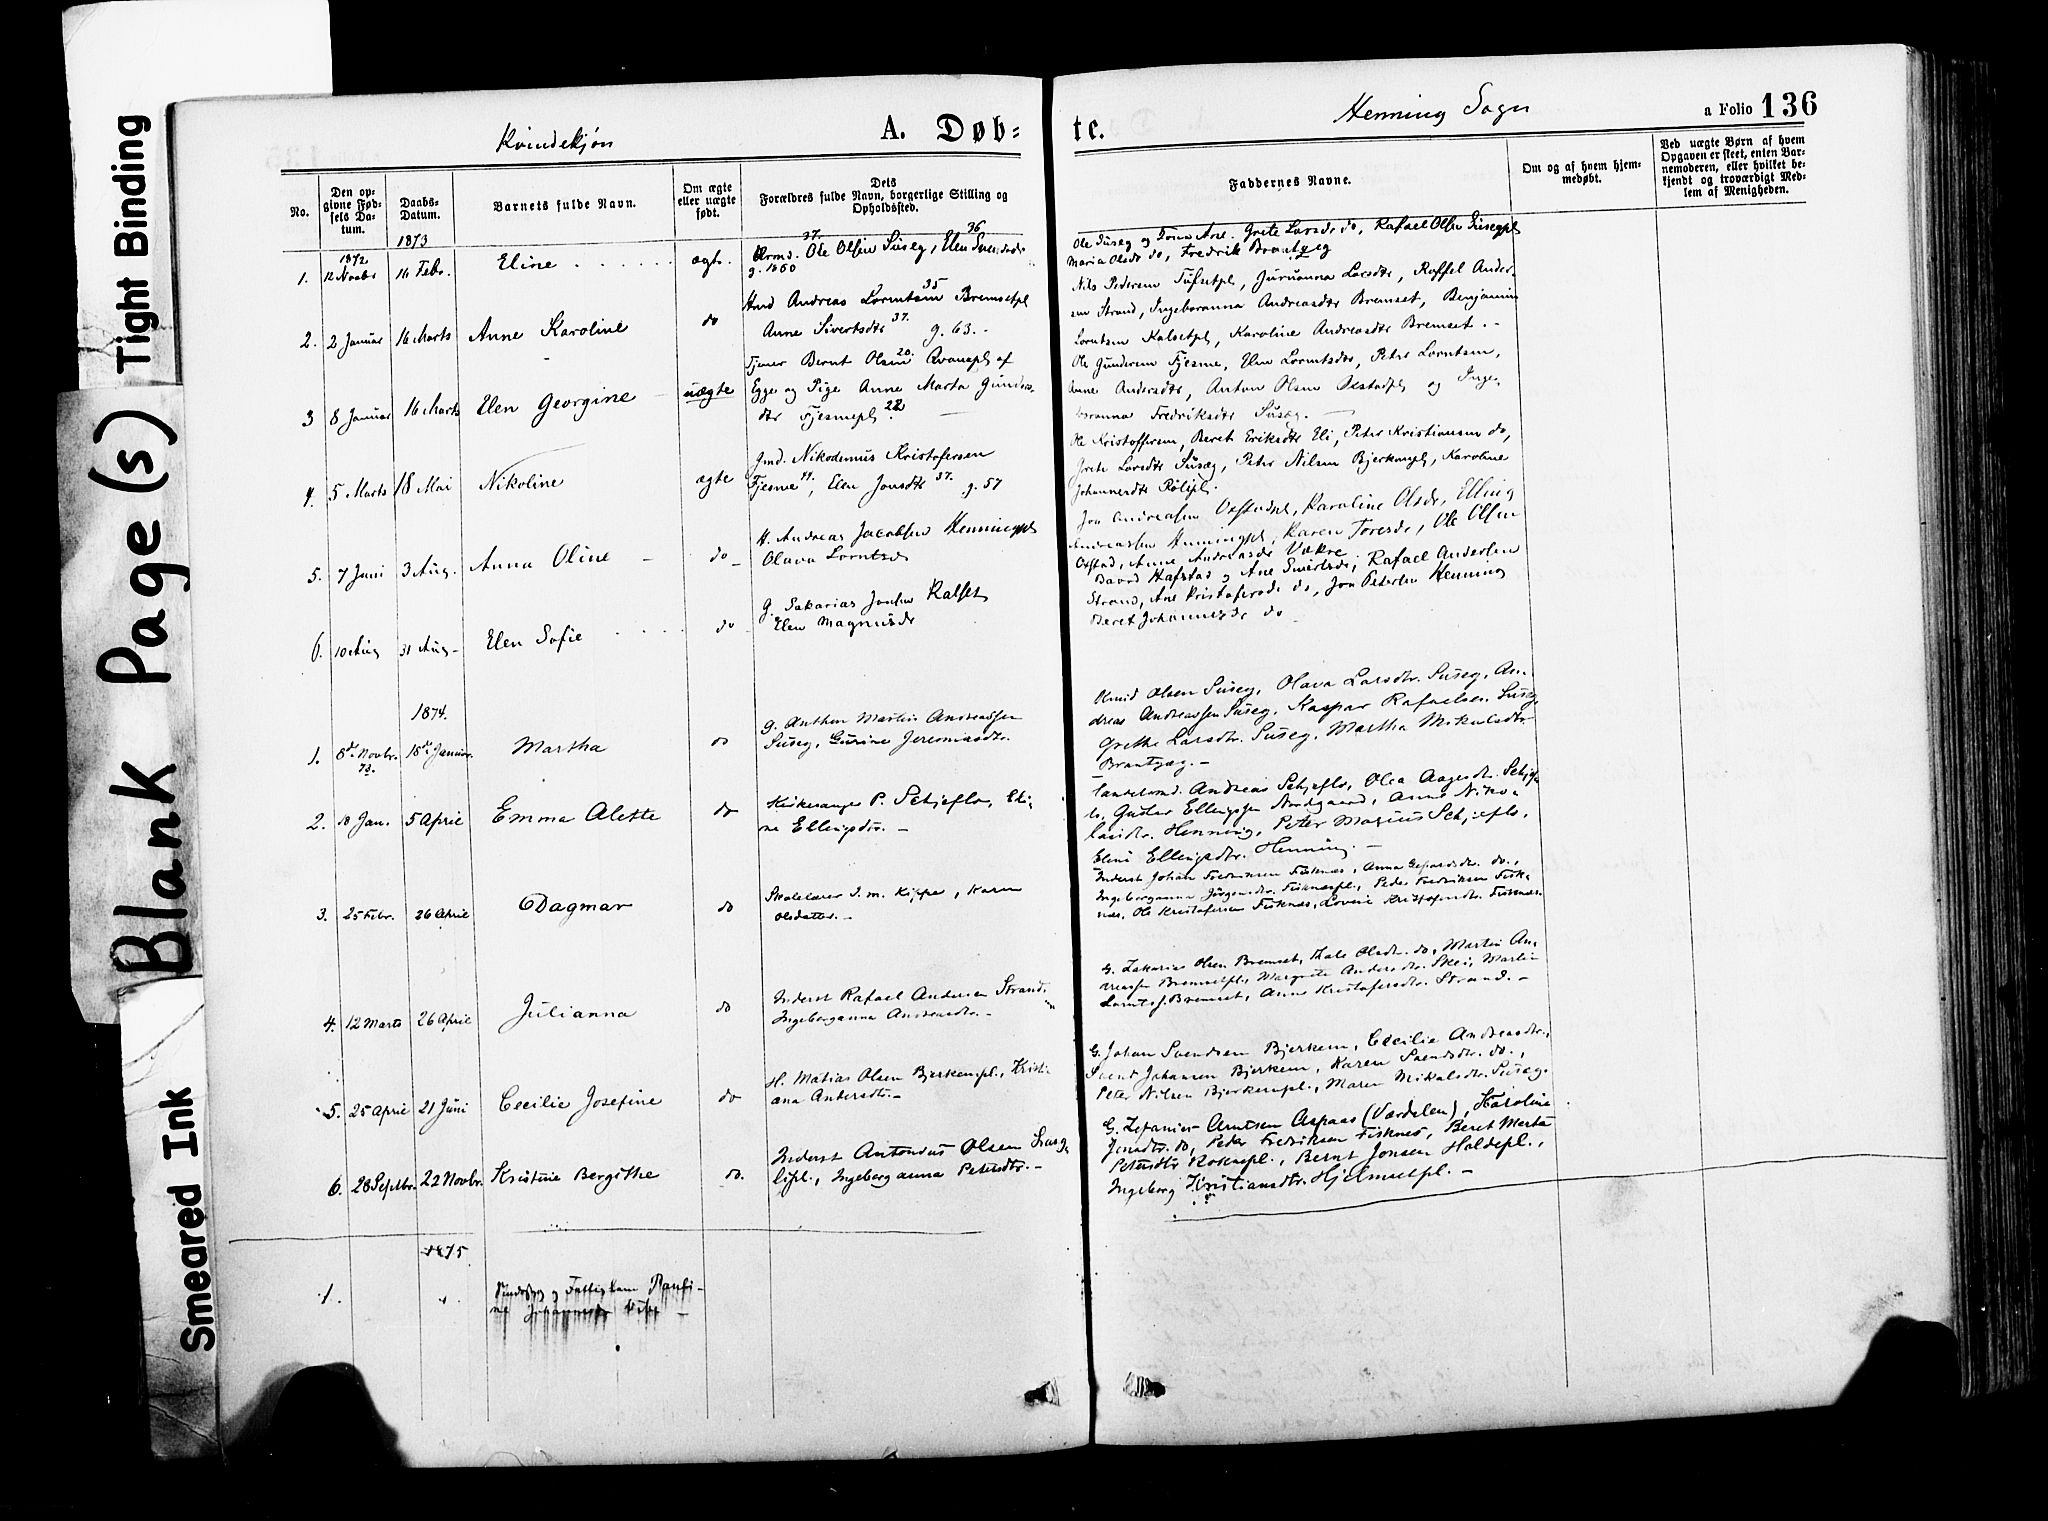 Tight Binding
Blank Page (s)
Smeared Ink
Kvindekjøn
A. Døb-
te.
Henning Sogn
a Folio 136
No.
Den opgivne Fødsels Datum.
Daabs-Datum.
Barnets fulde Navn.
Om ægte eller uægte født.
Dets Forældres fulde Navn, borgerlige Stilling og Opholdssted.
Faddernes Navne.
Om og af hvem hjemmedøbt.
Ved uægte Børn af hvem Opgaven er skeet, enten Barnemoderen, eller hvilket bekjendt og troværdigt Medlem af Menigheden.
1873
1872
1. 12 Novbr 16 Febr. Eline ægte. Ole Olsen Suseg, 37. Elen 36
g. 1860
Ole Suseg og Ane. Grete Larsdr do, Rafael Olsen
Maria Olsdr do, Fredrik
2. 2 Januar 16 Marts Anne Karoline do Andreas Lorntsen 35 Bremsetpl
Anne Sivertsdtr 37. g. 63.-
Nils Pedersen Larsdtr, Roffel Ander-
sen Strand, Ingeboranna Andreasdtr Bremset, Benjamin
Lorntsen Kalsetpl, Karoline Andreasdtr Bremset. -
3 8 Januar 16 Marts Elen Georgine uægte Bernt Olsen 20. af
Egge og Pige Anne Marta Gunders-
dtr Fjesmepl 22
Ole Gundersen Fjesme, Elen Lorntsdtr, Peter Lorntsen,
Anne Andersdtr, Anton Olsen Oxstadpl og Inge-
boranna Fredriksdtr Suseg. -
4. 5 Marts 18 Mai Nikoline ægte Gmd. Nikodemus Kristofersen
Fjesme, Elen Jonsdtr 37. g. 57
Ole Kristoffersen, Beret Eriksdtr Eli, Peter Kristiansen do,
Grete Larsdtr Suseg, Peter Nilsen Bjerkempl, Karoline
Johannesdtr
5. 7 Juni 3 Aug. Anna Oline do H. Andreas Jacobsen Henningpl
Olava Lorntsdr
Jon Andreasen Oxstadpl, Karoline Olsdr, Elling
Andreassen Henningpl, Karen Toresdr, Ole Olsen
Oxstad, Anne Andreasdr
6. 10 Aug 31 Aug Elen Sofie do g. Sakarias Kalset
Elen Magnusdr
Baard Hafstad og Ane Sivertsdr, Rafael Andersen
Strand, Ane Kristofersdr do, Jon Petersen Henning
Beret Johannesdr do
1874.
1. 8de Novbr. 73. 18de Januar. Martha do g. Anthon Martin Andreassen
Suseg, Gurine Jeremiasdtr.
Knud Olsen Suseg, Olava Larsdtr. Suseg, An-
dreas Andreassen Suseg, Kaspar Rafaelsen Suseg
Grethe Larsdtr. Suseg, Martha Mikalsdtr
2. 18 Jan. 5 April Emma Alette do Kirkesanger P. Schjeflo, Eli-
ne Ellingsdtr. -
Andreas Schjeflo, Olea Aagesdtr. Schjef-
lo, Gustav Ellingsen Nordgaard, Anne Niko-
laidtr. Henning, Peter Marius Schjeflo,
Eline Ellingsdtr. Henning. -
3. 25 Febr. 26 April Dagmar do Skolelærer J. M. Kippe, Karen
Olsdatter. -
Inderst Johan Fredriksen Fisknæs, Anna do.,
Ingeboranna Jörgensdtr. Fisknæspl., Peder Fredriksen Fisk-
næs, Ole Kristofersen Fisknæs, Lovise Kristofersdtr. Fisknæs.
4. 12 Marts 26 April Julianna do Inderst Rafael Andersen Strand,
Ingeboranna Andreasdtr. -
G. Zakarias Olsen Bremset, Olsdtr. do, Martin An-
dreassen Bremsetpl., Margrete Andersdtr. Skei, Martin
Lorntsen Bremset, Anne Kristofersdtr. Strand. -
5. 25 April 21 Juni Cecilie Josefine do H. Matias Olsen Bjerkempl., Kristi-
ana Andersdtr. -
G. Johan Svendsen Bjerkem, Cecilie Andreasdtr.,
Svend Johansen Bjerkem, Karen Svendsdtr. do.,
Peter Nilsen Bjerkempl., Maren Mikalsdtr. Suseg.
6. 28 Septbr. 22 Novbr. Kristine Bergithe do. Inderst Antonius Olsen
Ingeboranna Petersdtr. -
G. Zefanias Arntsen Aspaas (Værdalen), Karoline
Jonsdtr. do, Peder Fredriksen Fisknæs, Beret Marta
Petersdtr. Bernt Jonsen Haldepl.,
Ingeborg Kristiansdtr. Hjelmsetpl. -
1875
1.